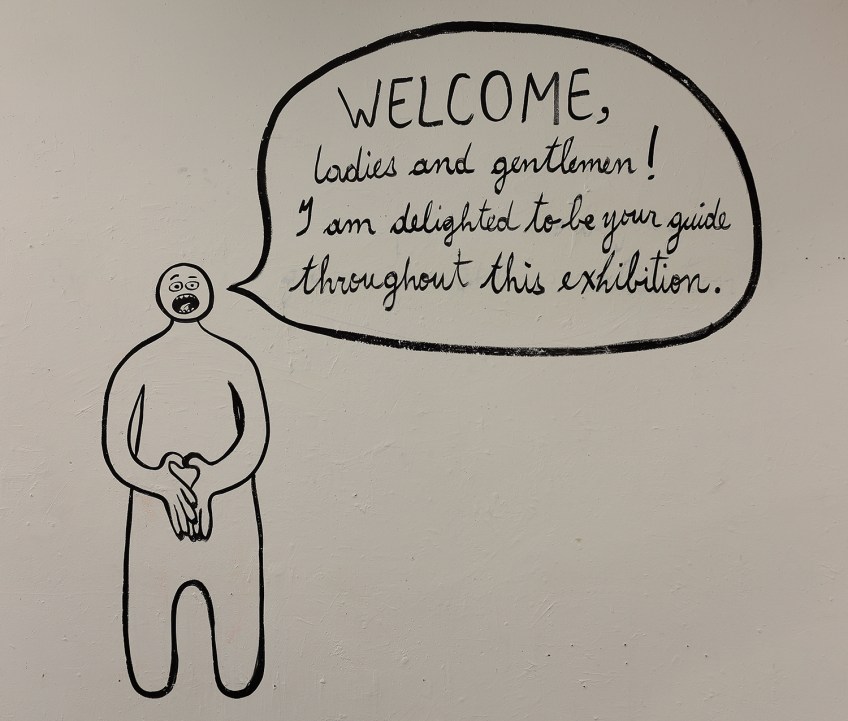 WELCOME,
ladies and gentlemen!
I am delighted to be your guide
throughout this exhibition.